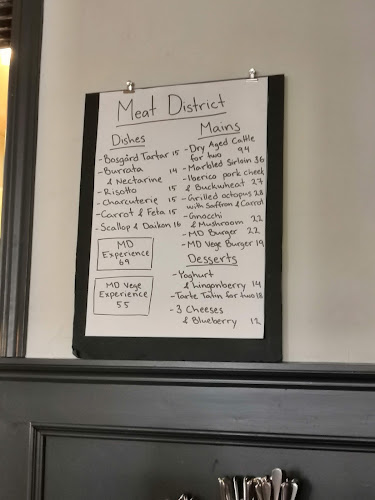 Meat District
Dishes
- Bosgård Tartar 15
- Burrata
& Nectarine 14
- Risotto 15
- Charcuterie 15
- Carrot & Feta 15
- Scallop & Daikon 16
MD
Experience
69
MD Vege
Experience
55
Mains
- Dry Aged Cattle
for two 94
- Marbled Sirloin 36
- Iberico pork cheek
& Buckwheat 27
- Grilled octopus 28
with Saffron & Carrot
- Gnocchi
& Mushroom 22
- MD Burger 22
- MD Vege Burger 19
Desserts
- Yoghurt
& Lingonberry 14
- Tarte Tatin for two 18
- 3 Cheeses
& Blueberry 12